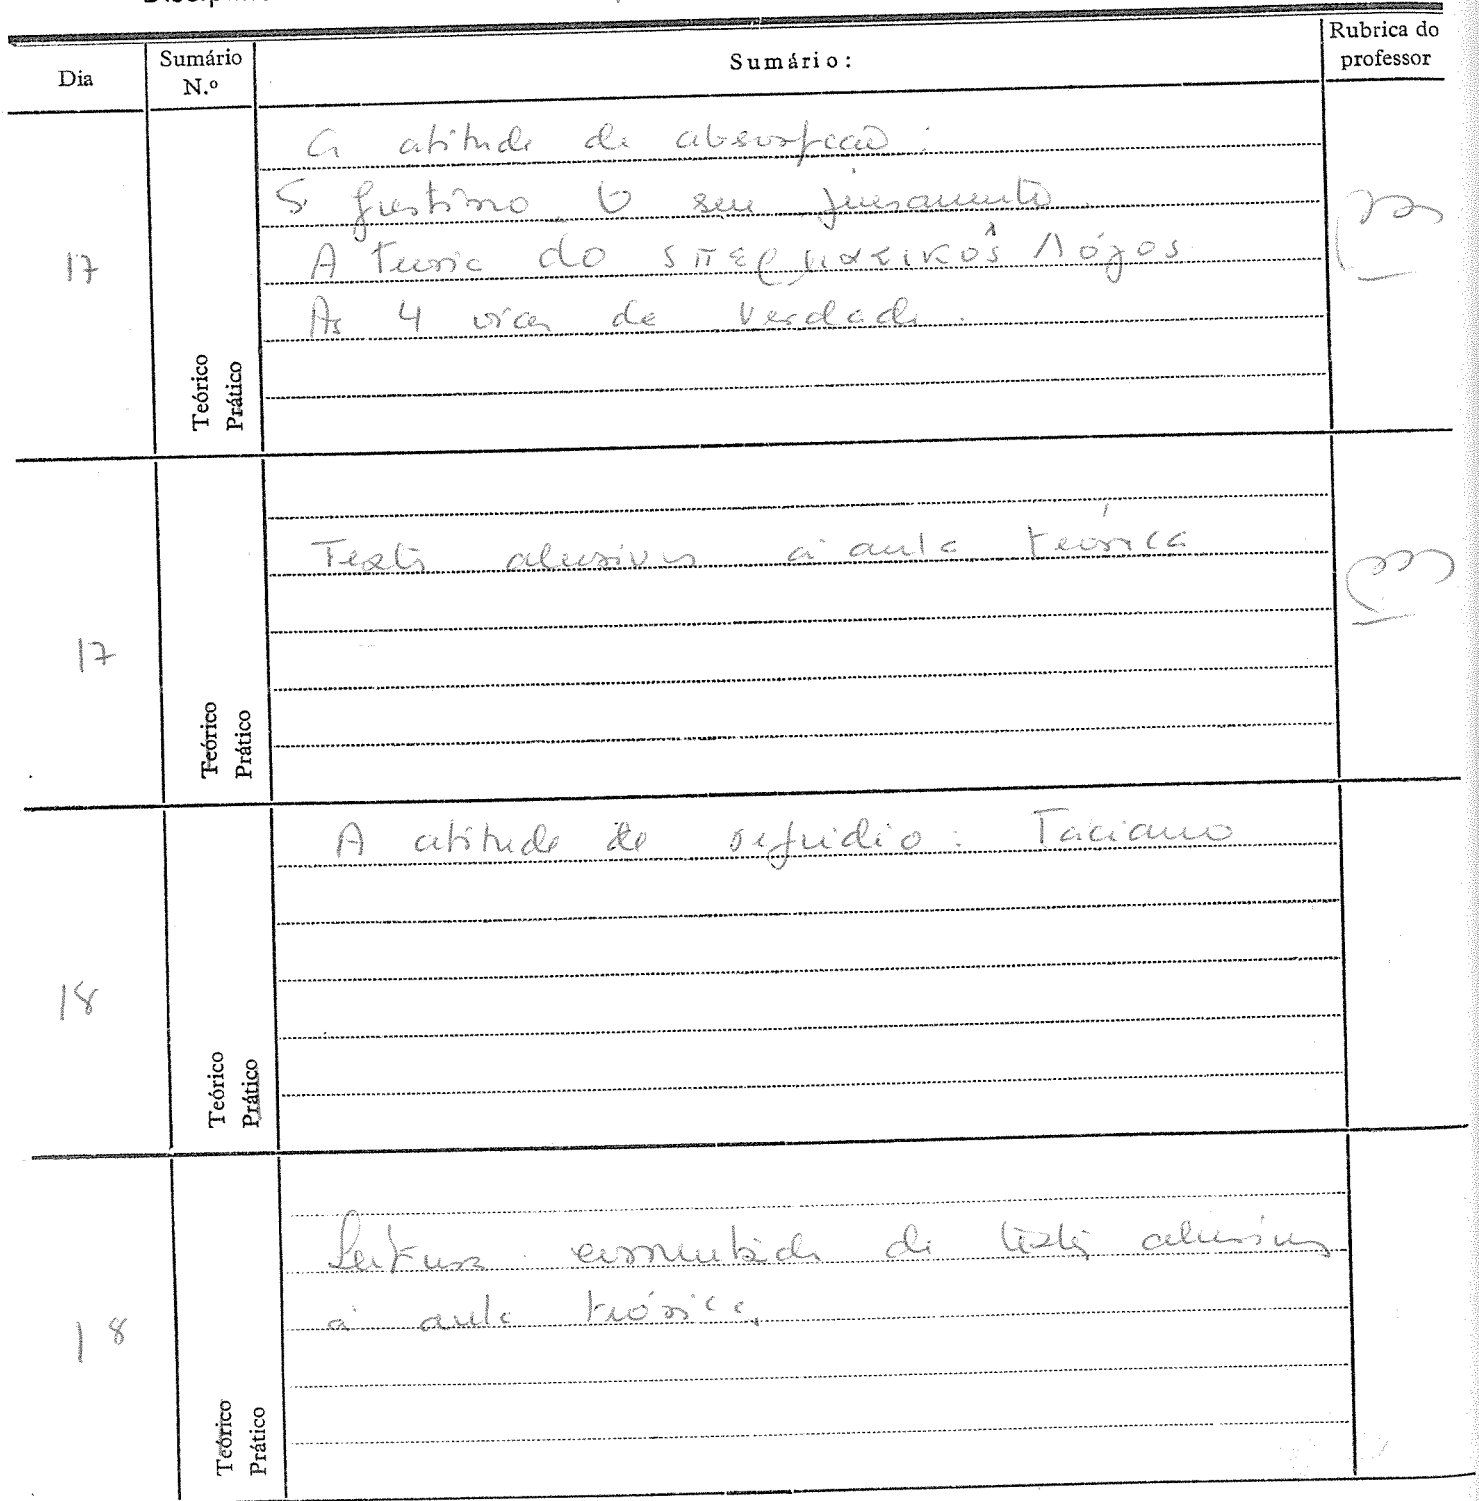 Dia
Sumário N.º
Sumário:
Rubrica do professor
17
A atitude de absorpção:
S. Justino. O seu pensamento.
A teoria do σπερματικὸς Λόγος
As 4 vias da verdade.
Teórico
Prático
17
Textos alusivos à aula teórica
Teórico
Prático
18
A atitude de repúdio: Taciano
Teórico
Prático
18
Leitura comentada de textos alusivos
à aula teórica.
Teórico
Prático